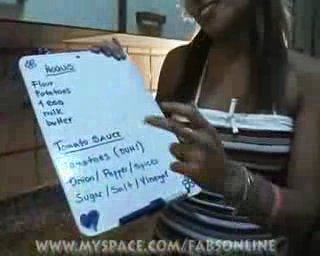 Flour
Potatoes
1 egg
milk
butter
Tomato SAUCE
Tomatoes (DUH!)
Onion/Pepper/Spices
Sugar/Salt/Vinegar
WWW.MYSPACE.COM/FABSONLINE